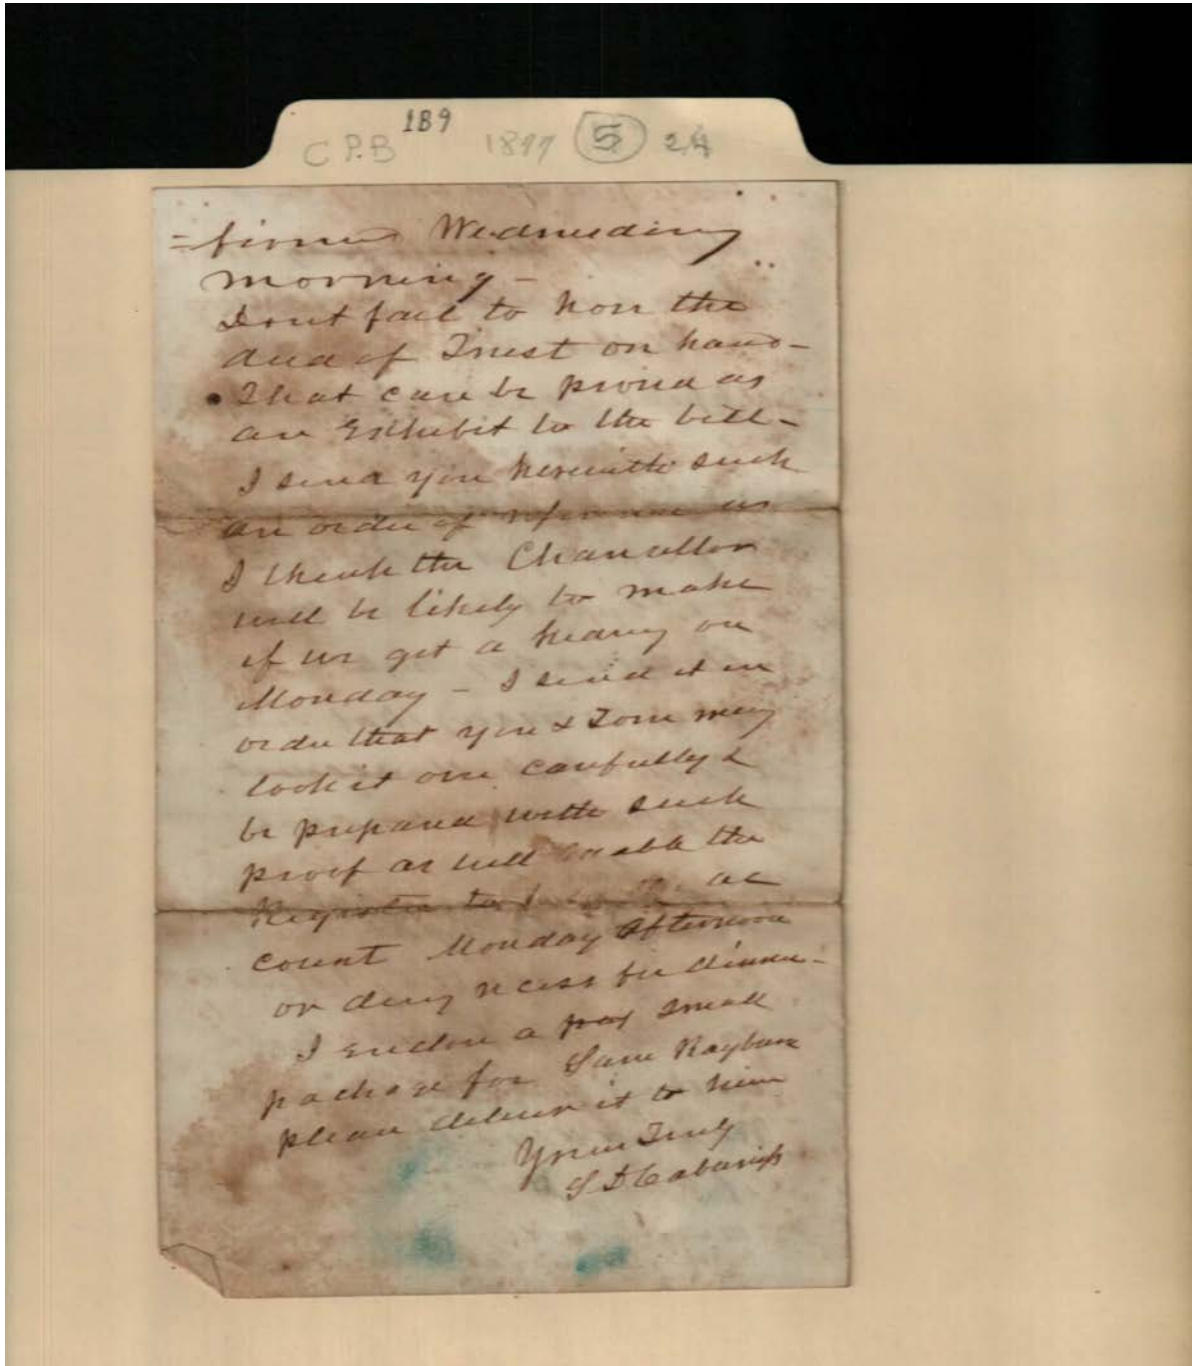 189
C P.B 1877 5 24
=firmed Wednesday
morning -
Dont fail to have the
deed of Trust on hand -
That can be proved as
an Exhibit to the bill -
I send you herewith such
an order of reference as
I think the Chancellor
will be likely to make
if we get a hearing on
Monday - I send it in
order that you & Tom may
look it over carefully &
be prepared with such
proof as will enable the
Register to ac
count Monday afternoon
or during recess for dinner -
I enclose a pay small
package for Sam Rayburn
please deliver it to him
Yours Truly
S D Cabaniss